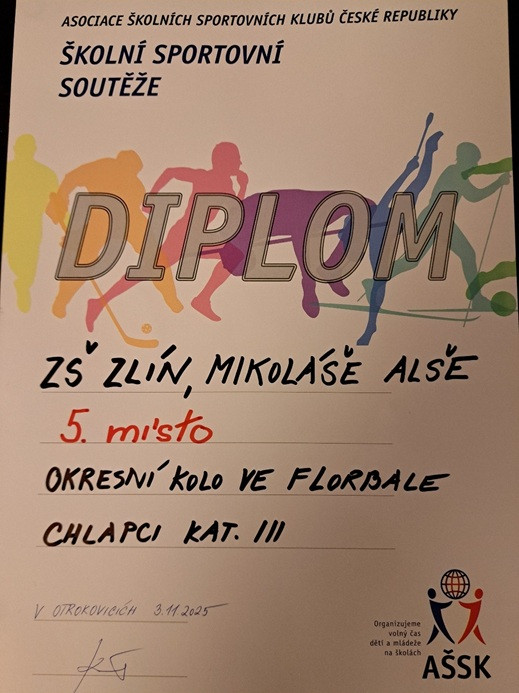 ASOCIACE ŠKOLNÍCH SPORTOVNÍCH KLUBŮ ČESKÉ REPUBLIKY
ŠKOLNÍ SPORTOVNÍ
SOUTĚŽE
DIPLOM
ZŠ ZLÍN, MIKOLÁŠE ALŠE
5. místo
OKRESNÍ KOLO VE FLORBALE
CHLAPCI KAT. III
V OTROKOVICÍCH 3.11.2025
Organizujeme
volný čas
dětí a mládeže
na školách
AŠSK